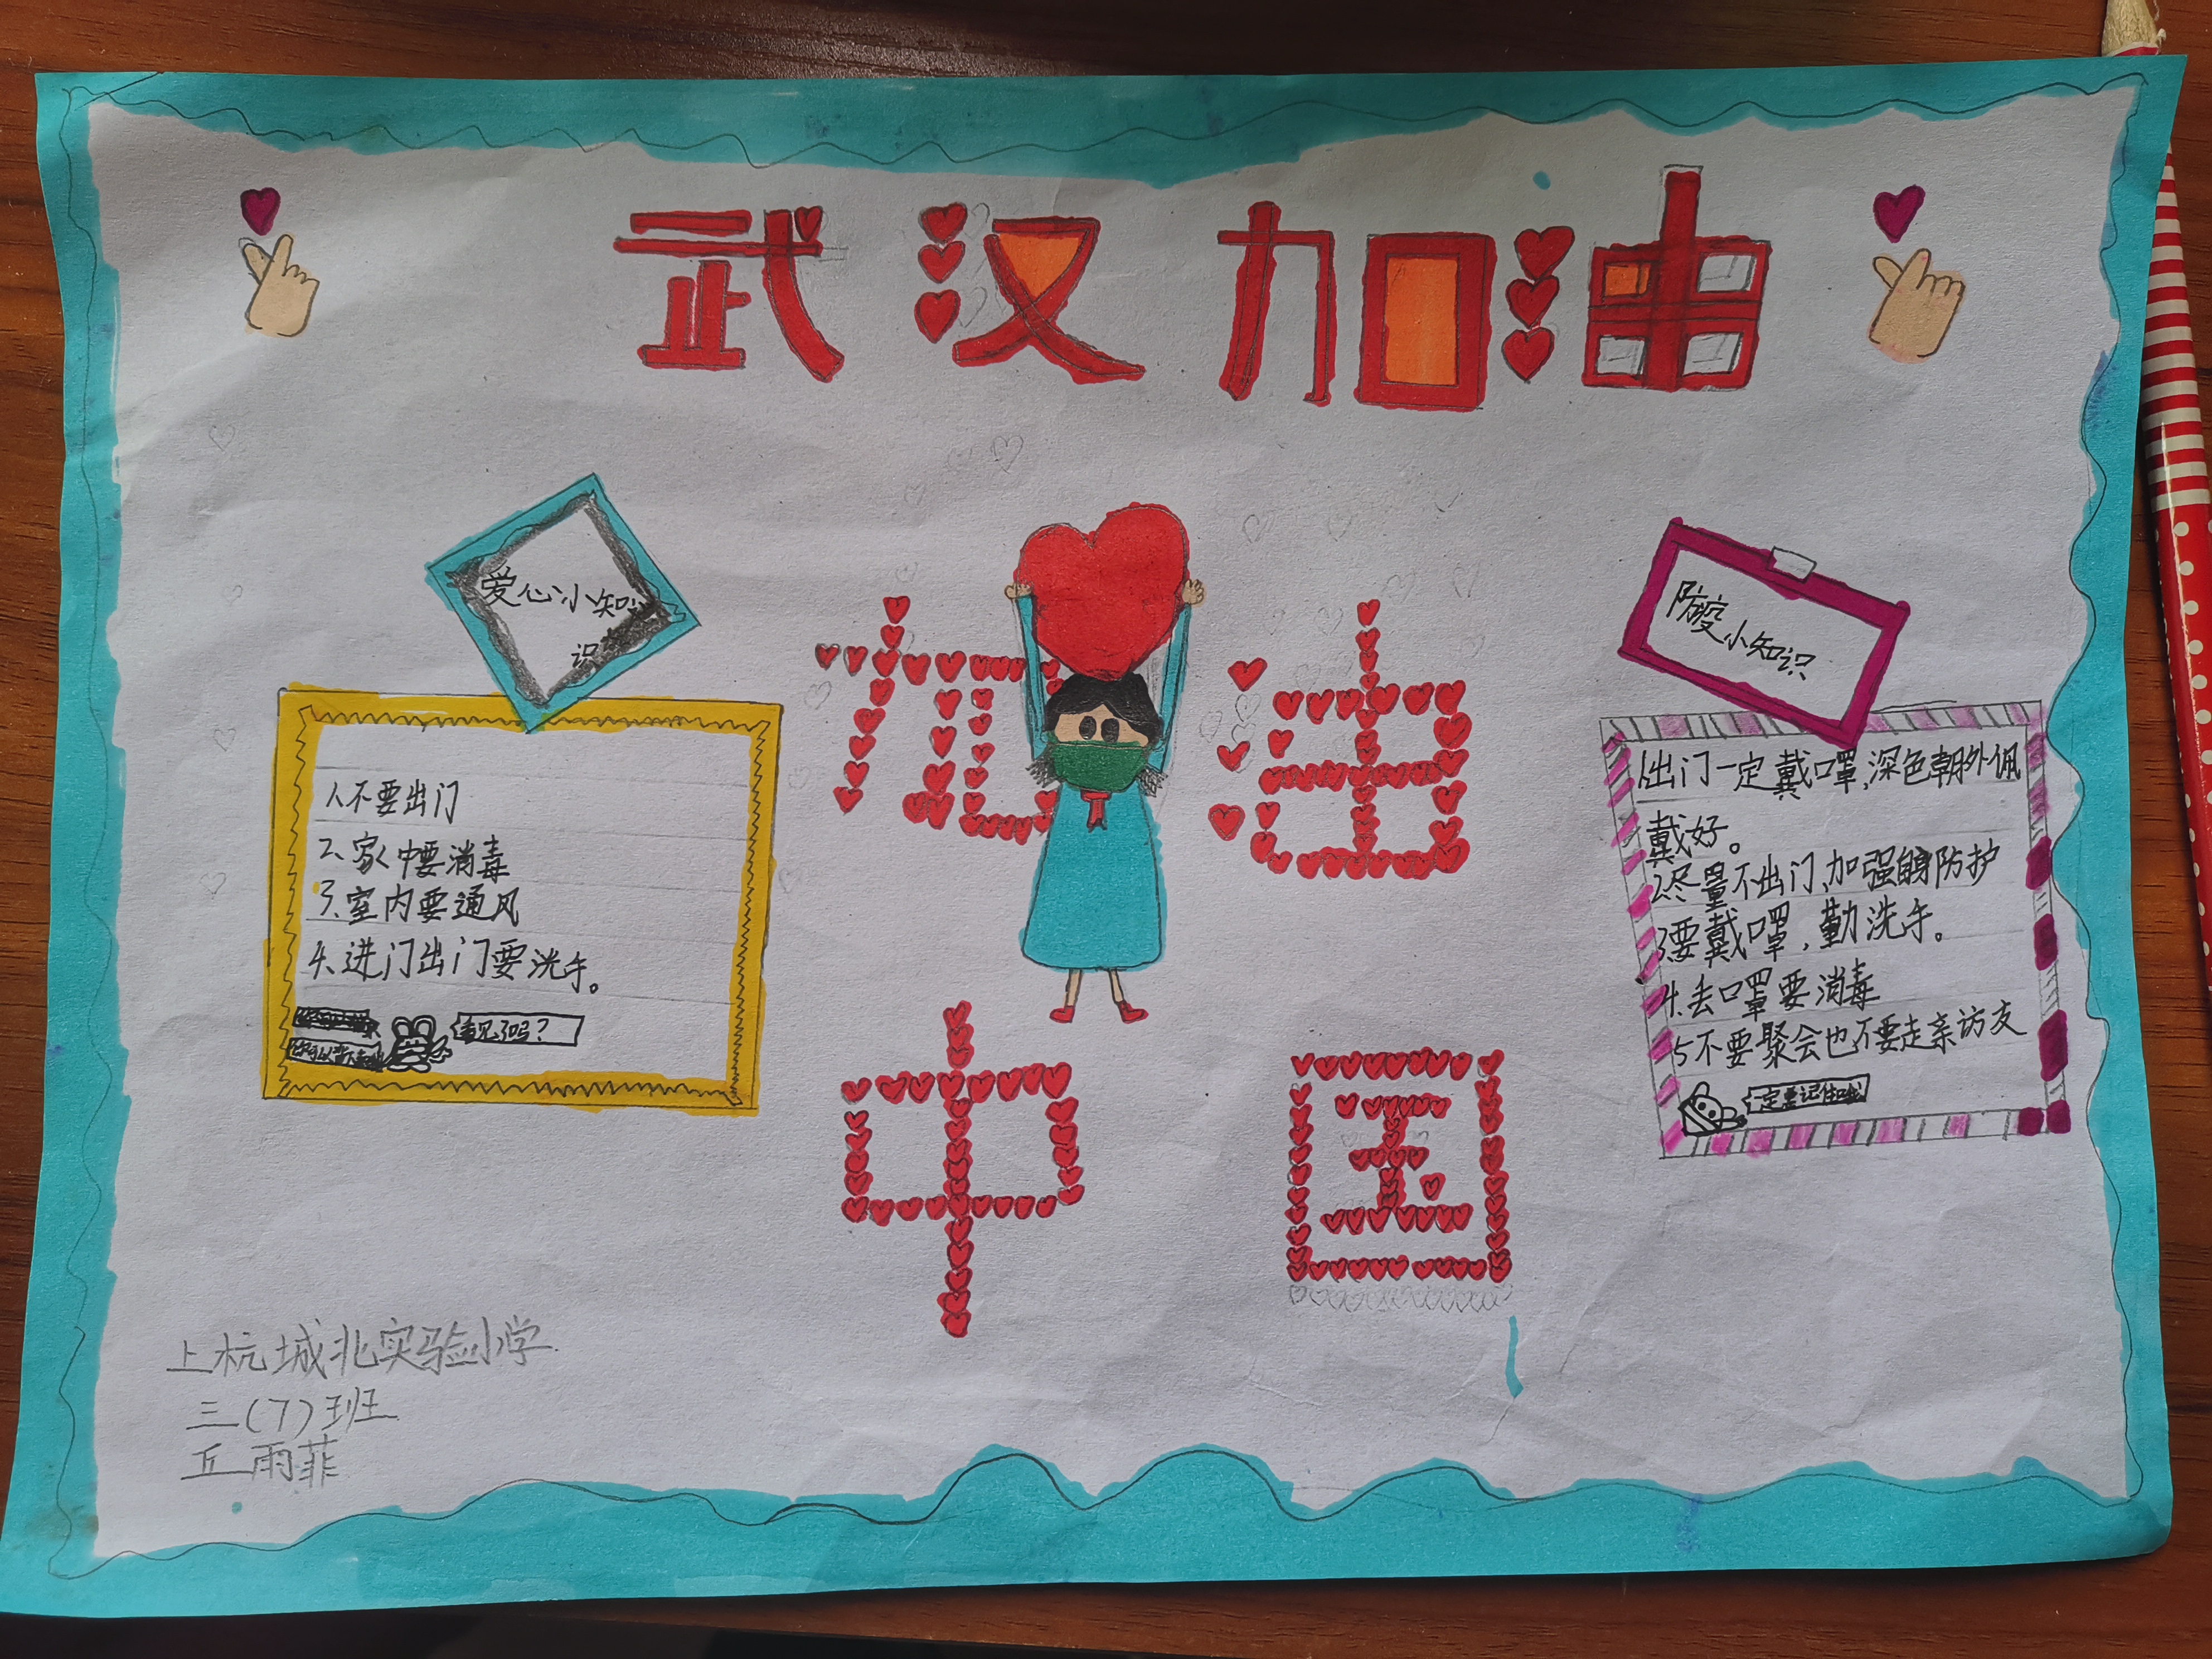 武汉加油
爱心小知
识
1.不要出门
2、家中要消毒
3、室内要通风
4、进门出门要洗手。
看见了吗？
加油
中国
防疫小知识
1出门一定戴口罩,深色朝外佩
戴好。
2.尽量不出门,加强自身防护
3.要戴口罩,勤洗手。
4.丢口罩要消毒
5不要聚会也不要走亲访友
一定要记住哦
上杭城北实验小学
三(7)班
丘雨菲